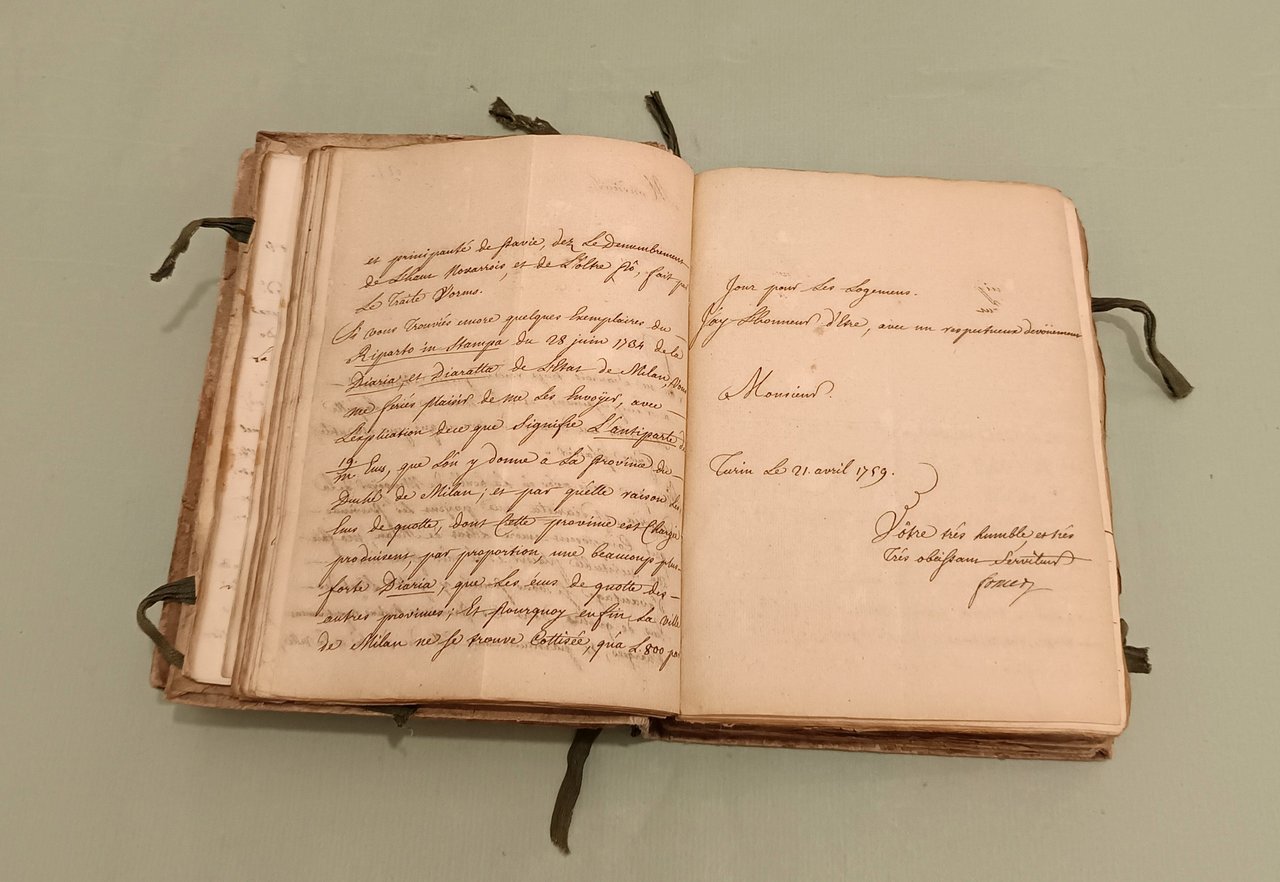 et principauté de pavie, dez Le Demembrement
de L'haut Novarrois, et de L'oltre pô, fait par
Le Traité Worms.
Si vous Trouviés encore quelques Exemplaires du
Riparto in Stampa du 28 juin 1734 de la
Diaria, et Diaratta de L'Etat de Milan, vous
me feriés plaisir de me Les Envoÿer, avec
L'explication de ce que Signifie L'antiparte de
19/m Ecus, que L'on y donne à La province de
Duché de Milan; et par quelle raison Les
Ecus de quotte, dont Cette province est Chargée
produisent, par proportion, une beaucoup plus
forte Diaria; que Les écus de quotte des
autres provinces; Et pourquoy enfin La Ville
de Milan ne se trouve Cottisée, qu'a L. 800 par
Jour pour Les Logemens.
J'ay L'honneur d'Etre, avec un respectueux devoüement
Monsieur.
Turin Le 21. avril 1759.
Vôtre trés humble, et trés
Trés obéissant Serviteur